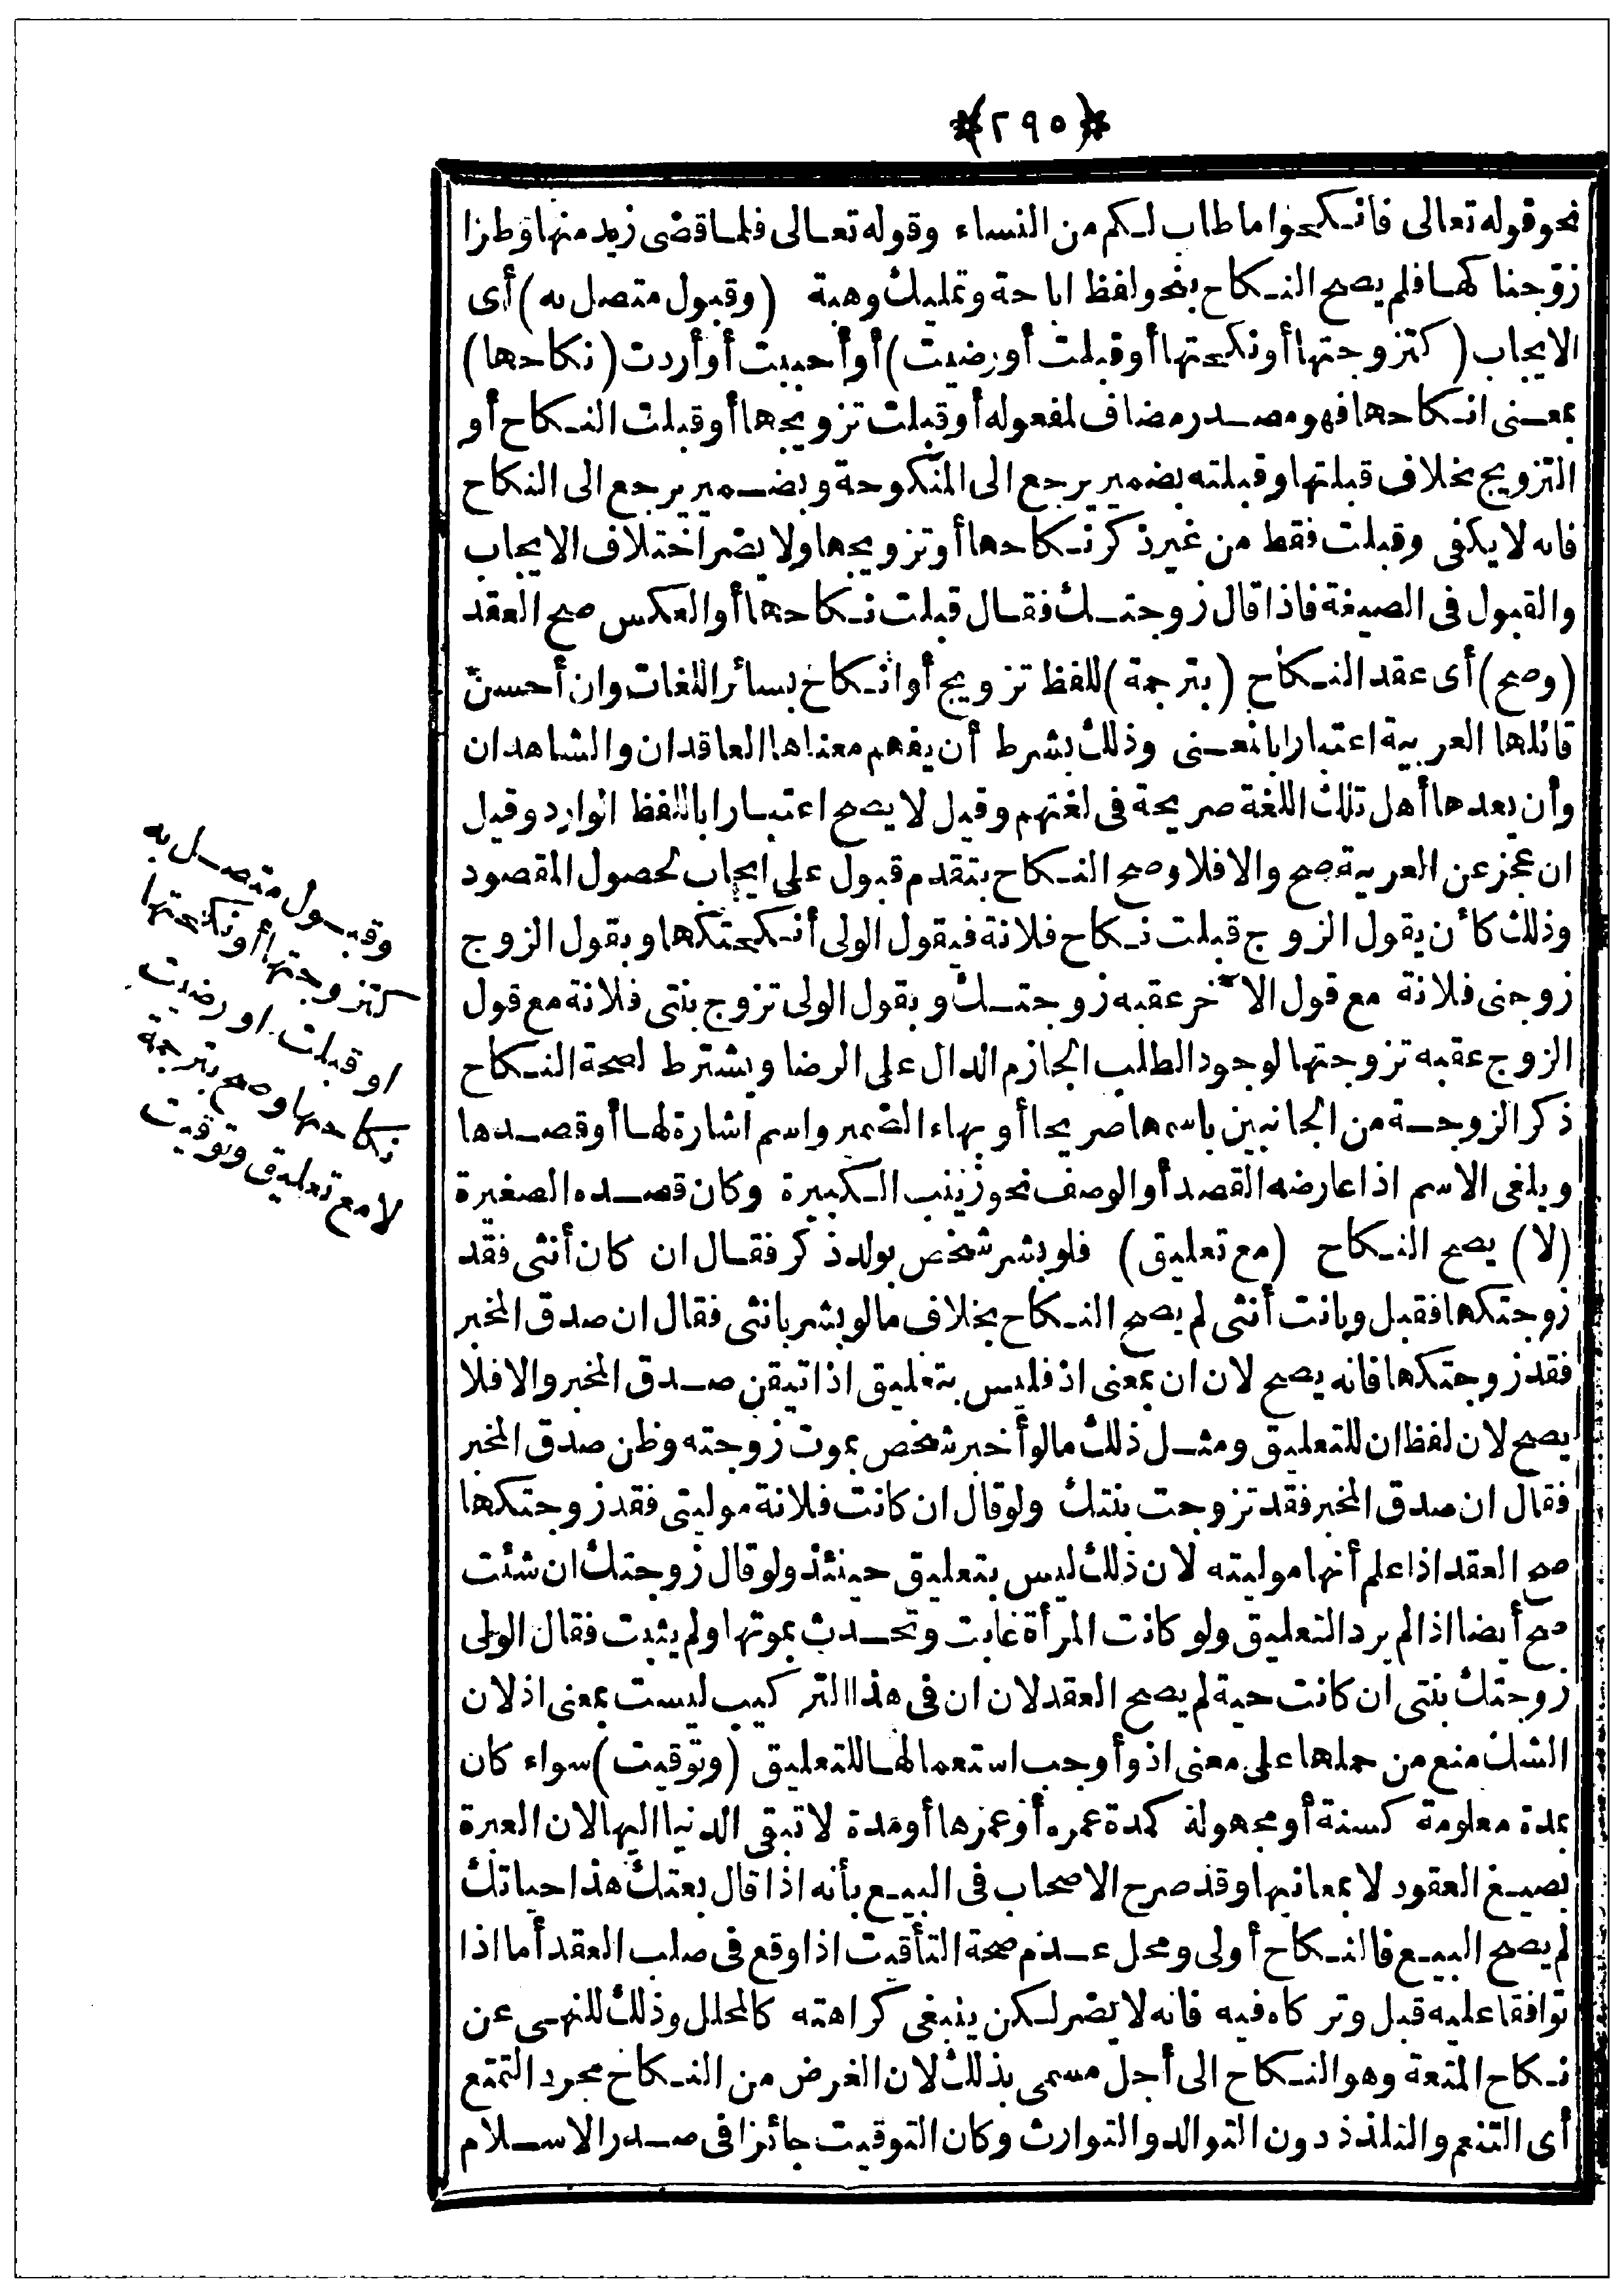 ﴿٢٩٥﴾
نحو قوله تعالى فانكحوا ما طاب لكم من النساء وقوله تعالى فلما قضى زيد منها وطرا
زوّجناكها فلم يصح النكاح بنحو لفظ اباحة وتمليك وهبة (وقبول متصل به) أى
الايجاب (كتزوجتها أو نكحتها أو قبلت أو رضيت) أو أحببت أو أردت (نكاحها)
بمعنى انكاحها فهو مصدر مضاف لمفعوله أو قبلت تزويجها أو قبلت النكاح أو
التزويج بخلاف قبلتها وقبلته بضمير يرجع الى المنكوحة وبضمير يرجع الى النكاح
فانه لا يكفى وقبلت فقط من غير ذكر نكاحها أو تزويجها ولا يضر اختلاف الايجاب
والقبول فى الصيغة فاذا قال زوجتك فقال قبلت نكاحها أو العكس صح العقد
(وصح) أى عقد النكاح (بترجمة) للفظ تزويج أو انكاح بسائر اللغات وان أحسن
قائلها العربية اعتبارا بالمعنى وذلك بشرط أن يفهم معناها العاقدان والشاهدان
وأن يعدها أهل تلك اللغة صريحة فى لغتهم وقيل لا يصح اعتبارا باللفظ الوارد وقيل
ان عجز عن العربية صح والا فلا وصح النكاح بتقدم قبول على ايجاب لحصول المقصود
وذلك كأن يقول الزوج قبلت نكاح فلانة فيقول الولى أنكحتكها وبقول الزوج
زوجنى فلانة مع قول الآخر عقبه زوجتك وبقول الولى تزوج بنتى فلانة مع قول
الزوج عقبه تزوجتها لوجود الطلب الجازم الدال على الرضا ويشترط لصحة النكاح
ذكر الزوجة من الجانبين باسمها صريحا أو بهاء الضمير واسم اشارة لها أو قصدها
ويلغى الاسم اذا عارضه القصد أو الوصف نحو زينب الكبيرة وكان قصده الصغيرة
(لا) يصح النكاح (مع تعليق) فلو بشر شخص بولد ذكر فقال ان كان أنثى فقد
زوجتكها فقبل وبانت أنثى لم يصح النكاح بخلاف ما لو بشر بانثى فقال ان صدق المخبر
فقد زوجتكها فانه يصح لان ان بمعنى اذ فليس بتعليق اذا تيقن صدق المخبر والا فلا
يصح لان لفظ ان للتعليق ومثل ذلك ما لو أخبر شخص بموت زوجته وظن صدق المخبر
فقال ان صدق المخبر فقد تزوجت بنتك ولو قال ان كانت فلانة موليتى فقد زوجتكها
صح العقد اذا علم أنها موليته لان ذلك ليس بتعليق حينئذ ولو قال زوجتك ان شئت
صح أيضا اذا لم يرد التعليق ولو كانت المرأة غابت وتحدث بموتها ولم يثبت فقال الولى
زوجتك بنتى ان كانت حية لم يصح العقد لان ان فى هذا التركيب ليست بمعنى اذ لان
الشك منع من حملها على معنى اذ وأوجب استعمالها للتعليق (وتوقيت) سواء كان
بمدة معلومة كسنة أو مجهولة كمدة عمره أو عمرها أو مدة لا تبقى الدنيا اليها لان العبرة
بصيغ العقود لا بمعانيها وقد صرح الاصحاب فى البيع بأنه اذا قال بعتك هذا حياتك
لم يصح البيع فالنكاح أولى ومحل عدم صحة التأقيت اذا وقع فى صلب العقد أما اذا
توافقا عليه قبل وتركاه فيه فانه لا يضر لكن ينبغى كراهته كالمحلل وذلك للنهى عن
نكاح المتعة وهو النكاح الى أجل مسمى بذلك لان الغرض من النكاح مجرد التمتع
أى التنعم والتلذذ دون التوالد والتوارث وكان التوقيت جائزا فى صدر الاسلام
وقبول متصل به
كتزوجتها أو نكحتها
او قبلت او رضيت
نكاحها وصح بترجمة
لا مع تعليق وتوقيت